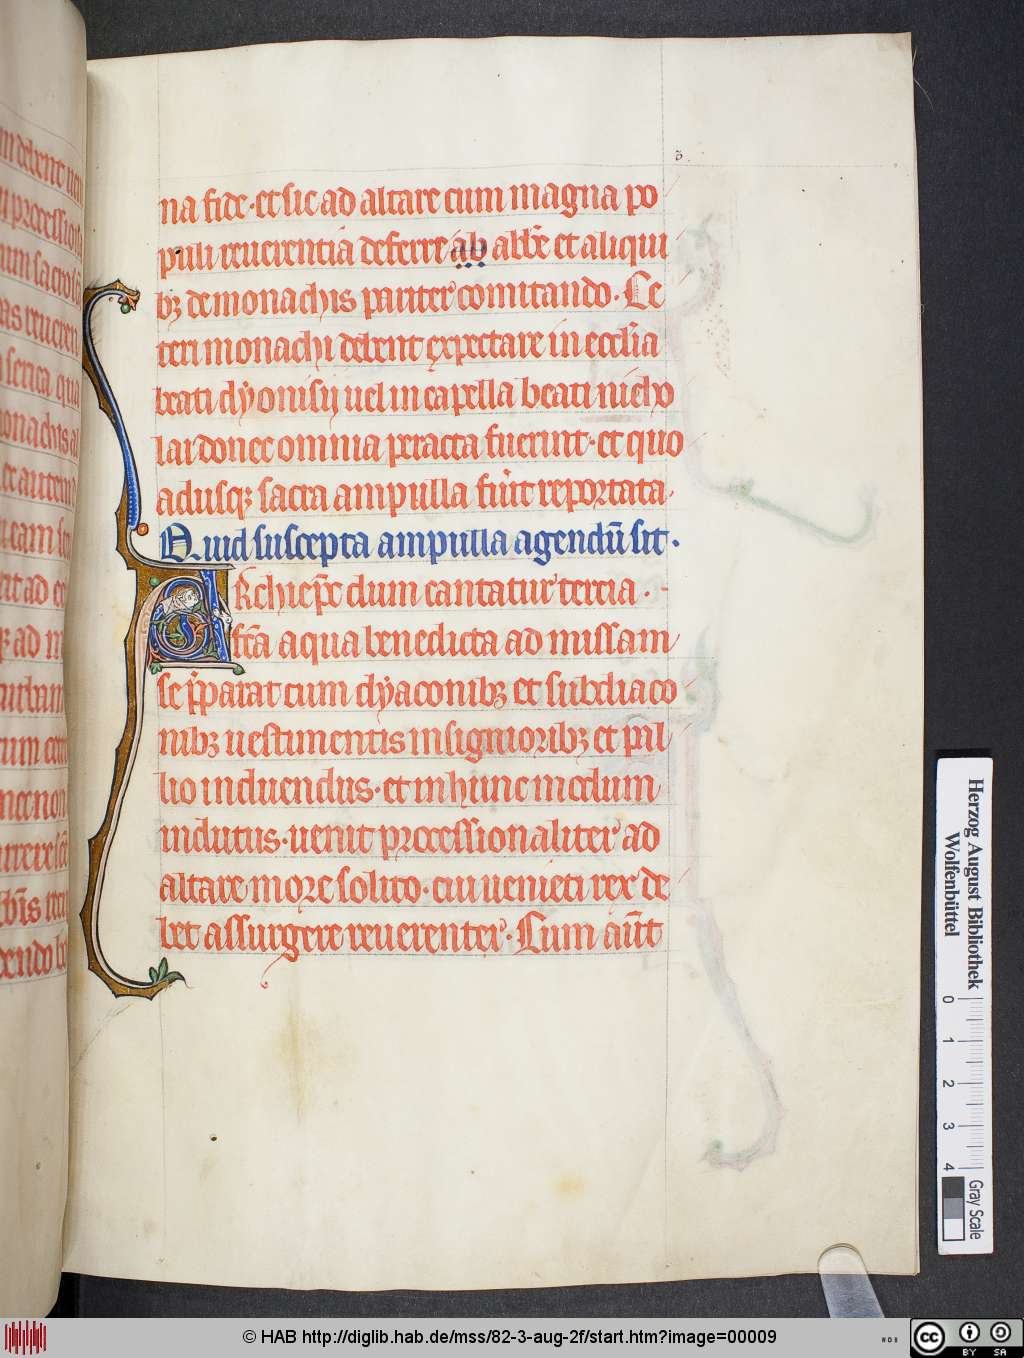 3
na fide · et sic ad altare cum magna po
puli reuerentia deferre ab abbē et aliqui
bꝫ de monachis pariter comitando · Ce
teri monachi debent expectare in eccl'ia
beati dyonisij uel in capella beati nicho
lai donec omnia peracta fuerint · et quo
adusqꝫ sacra ampulla fūit reportata
Quid suscepta ampulla agendū sit ·
ARchiep̄c dum cantatur tercia ·
fc̄a aqua benedicta ad missam
se p̄parat cum dyaconibꝫ et subdiaco
nibꝫ uestimentis insignioribꝫ et pal
lio induendus · et in hunc modum
indutus · uenit processionaliter ad
altare more solito · cui uenieti rex de
bet assurgere reuerenter · Cum aūt
Herzog August Bibliothek
Wolfenbüttel
0 1 2 3 4
Gray Scale
© HAB http://diglib.hab.de/mss/82-3-aug-2f/start.htm?image=00009
WDB
cc BY SA